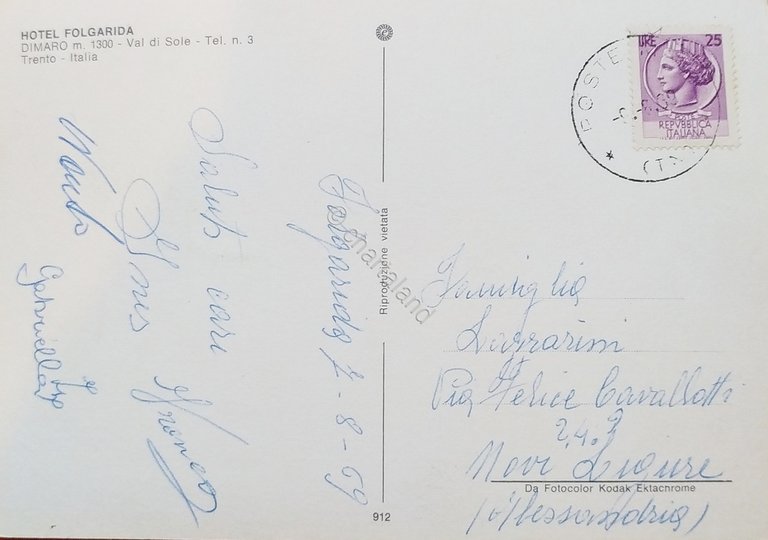 HOTEL FOLGARIDA
DIMARO m. 1300 - Val di Sole - Tel. n. 3
Trento - Italia
Folgarida 7-8-69
Saluti cari
Ines Franco
Gabriella
Riproduzione vietata
chartaland
912
LIRE 25
POSTE
REPVBBLICA
ITALIANA
(TN)
Famiglia
Lazzarini
Via Felice Cavallotti
Novi Ligure
(Alessandria)
Da Fotocolor Kodak Ektachrome